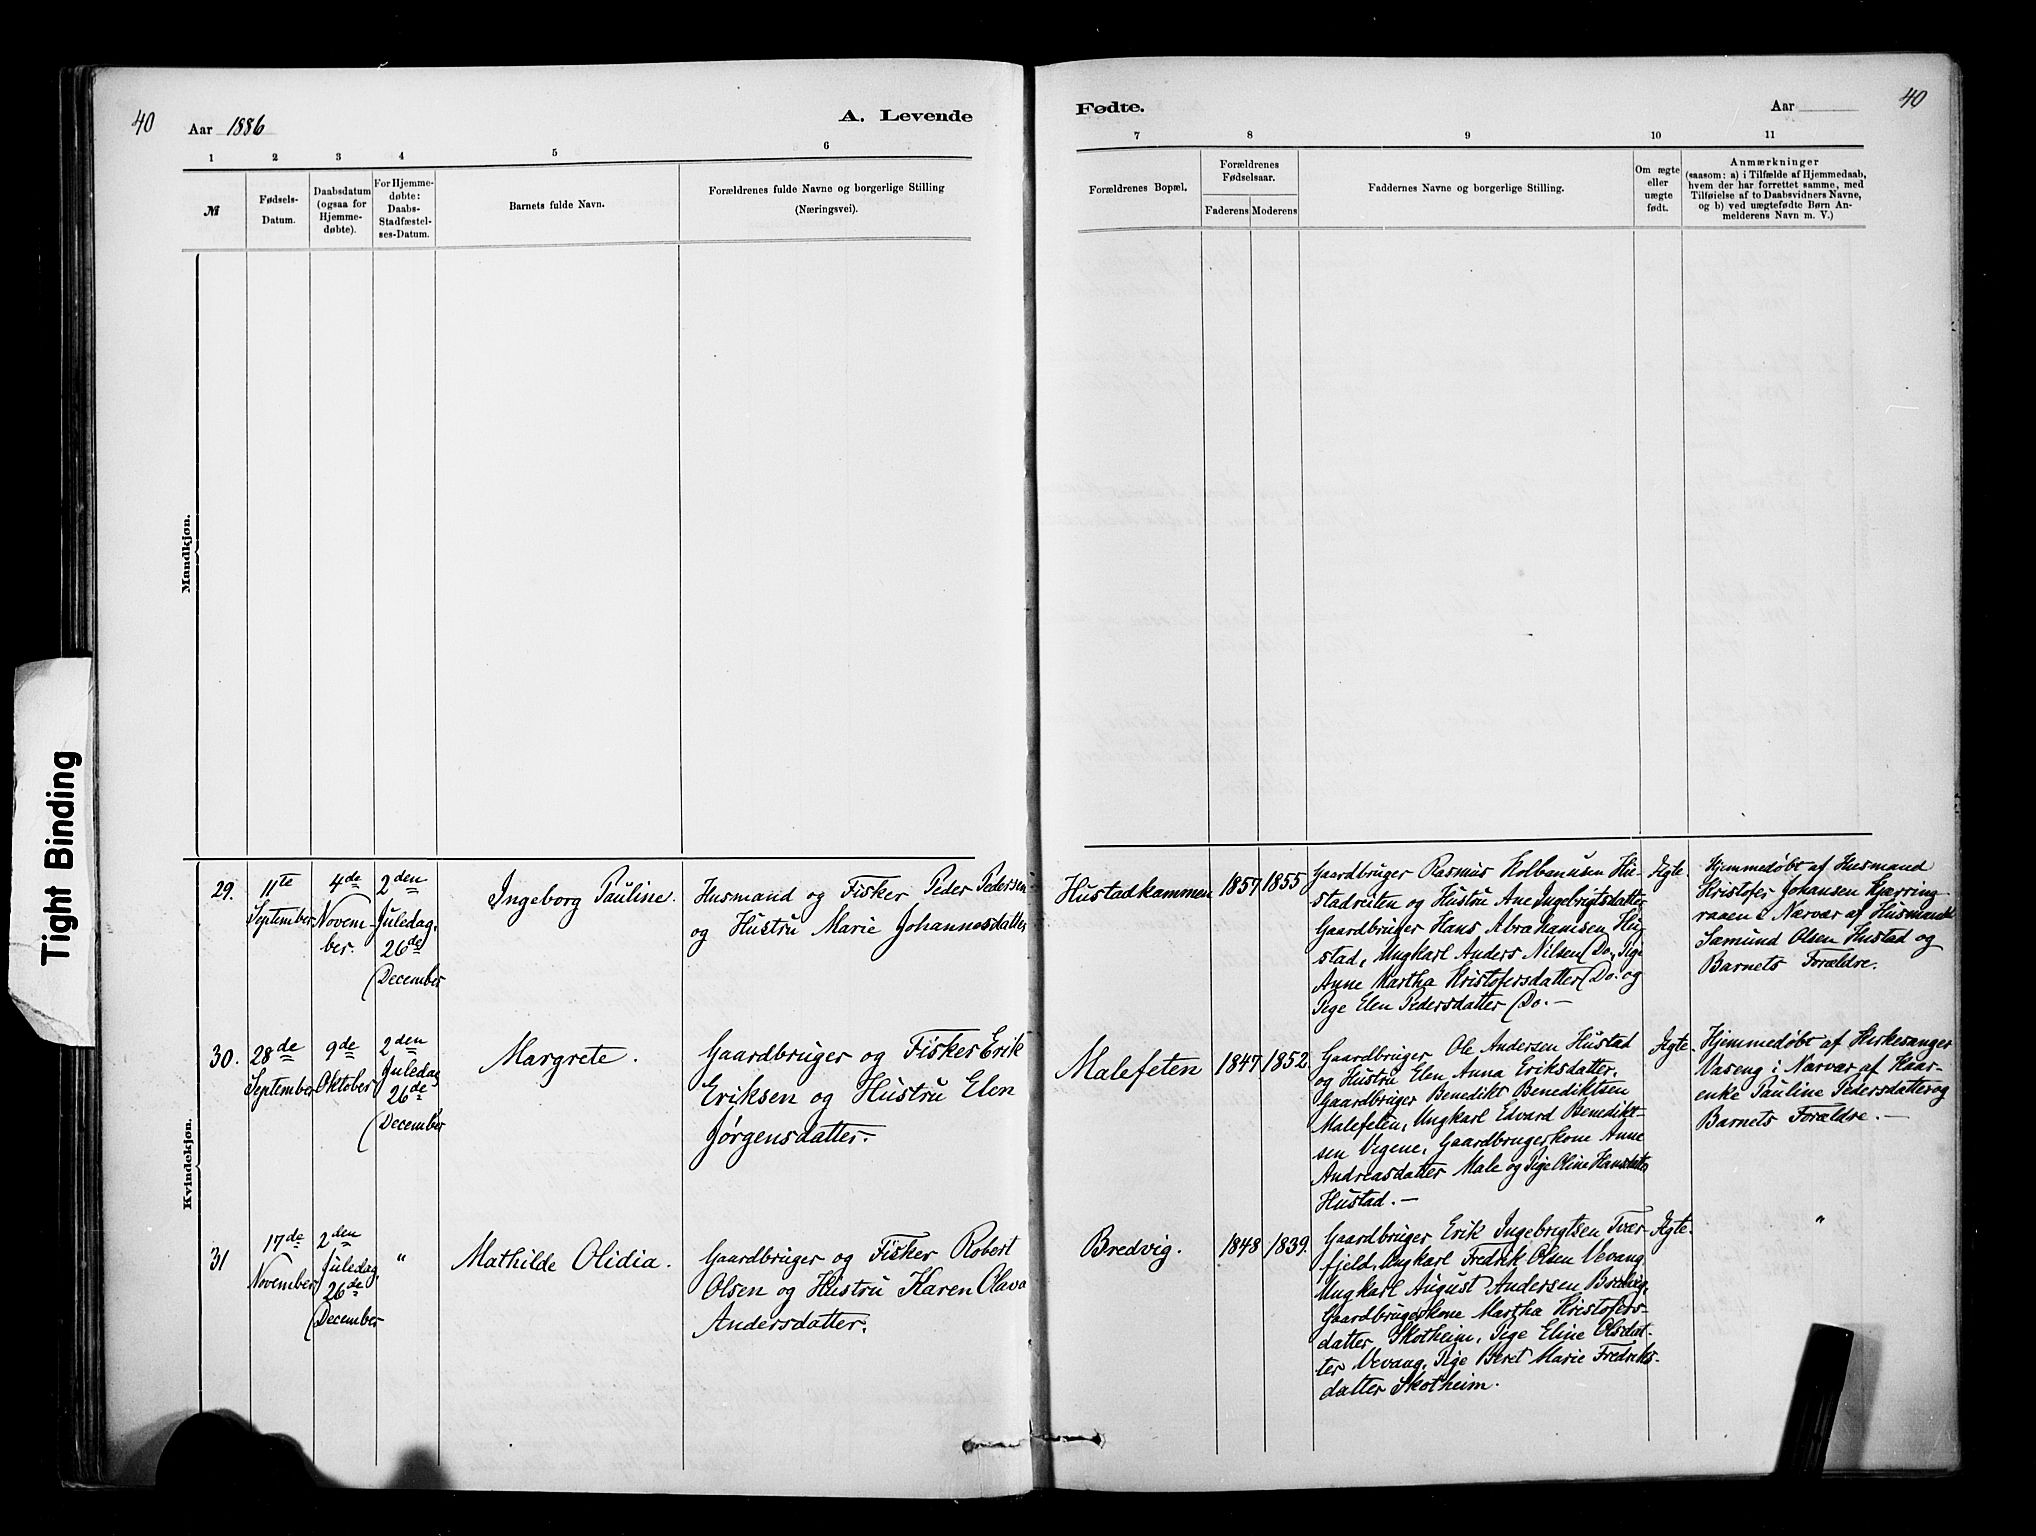 40
Aar 1886
A. Levende
Fødte.
Aar
40
1 2 3 4 5 6 7 8 9 10 11
№
Fødsels-
Datum.
Daabsdatum
(ogsaa for
Hjemme-
døbte).
For Hjemme-
døbte:
Daabs-
Stadfæstel-
ses-Datum.
Barnets fulde Navn.
Forældrenes fulde Navne og borgerlige Stilling
(Næringsvei).
Forældrenes Bopæl.
Forældrenes
Fødselsaar.
Faderens Moderens
Faddernes Navne og borgerlige Stilling.
Om ægte
eller
uægte
født.
Anmærkninger
(saasom: a) i Tilfælde af Hjemmedaab,
hvem der har forrettet samme, med
Tilføielse af to Daabsvidners Navne,
og b) ved uægtefødte Børn An-
melderens Navn m. V.)
Mandkjøn.
Tight Binding
Kvindekjøn.
29.
11te
September
4de
Novem-
ber.
2den
Juledag,
26de
December
Ingeborg Pauline.
Husmand og Fisker Peder Pedersen
og Hustru Marie Johannesdatter
Hustadkammen
1857
1855
Gaardbruger Rasmus Kolbanusen Hu-
stadruten og Hustru Ane Ingebrigtsdatter
Gaardbruger Hans Abrahamsen Hu-
stad, Ungkarl Anders Nilsen Do., Pige
Anne Martha Kristofersdatter Do. og
Pige Elen Pedersdatter Do. —
Ægte
Hjemmedøbt af Husmand
Kristofer Johansen Kjærring-
raaen i Nærvær af Husmand
Samund Olsen Hustad og
Barnets Forældre.
30.
28de
September
9de
Oktober
2den
Juledag
26de
December
Margrete.
Gaardbruger og Fisker Erik
Eriksen og Hustru Elen
Jørgensdatter.
Malefeten
1847
1852
Gaardbruger Ole Andersen Hustad
og Hustru Elen Anna Eriksdatter,
Gaardbruger Benedikt Benediktsen
Malefeten, Ungkarl Edvard Benedikt-
sen Vegene, Gaardbrugerkone Anne
Andreasdatter Male og Pige Oline Hansdatter
Hustad. —
Ægte
Hjemmedøbt af Kirkesanger
Vaseng i Nærvær af Kaar-
enke Pauline Pedersdatter og
Barnets Forældre. —
31
17de
November
2den
Juledag,
26de
December
"
Mathilde Olidia.
Gaardbruger og Fisker Robert
Olsen og Hustru Karen Olava
Andersdatter.
Bredvig.
1848
1839.
Gaardbruger Erik Ingebrigtsen Tvær-
fjeld, Ungkarl Fredrik Olsen Vevang,
Ungkarl August Andersen Bredvig,
Gaardbrugerkone Martha Kristofers-
datter Skotheim, Pige Eline Olsdat-
ter Vevang, Pige Beret Marie Fredriks-
datter Skotheim.
Ægte.
"